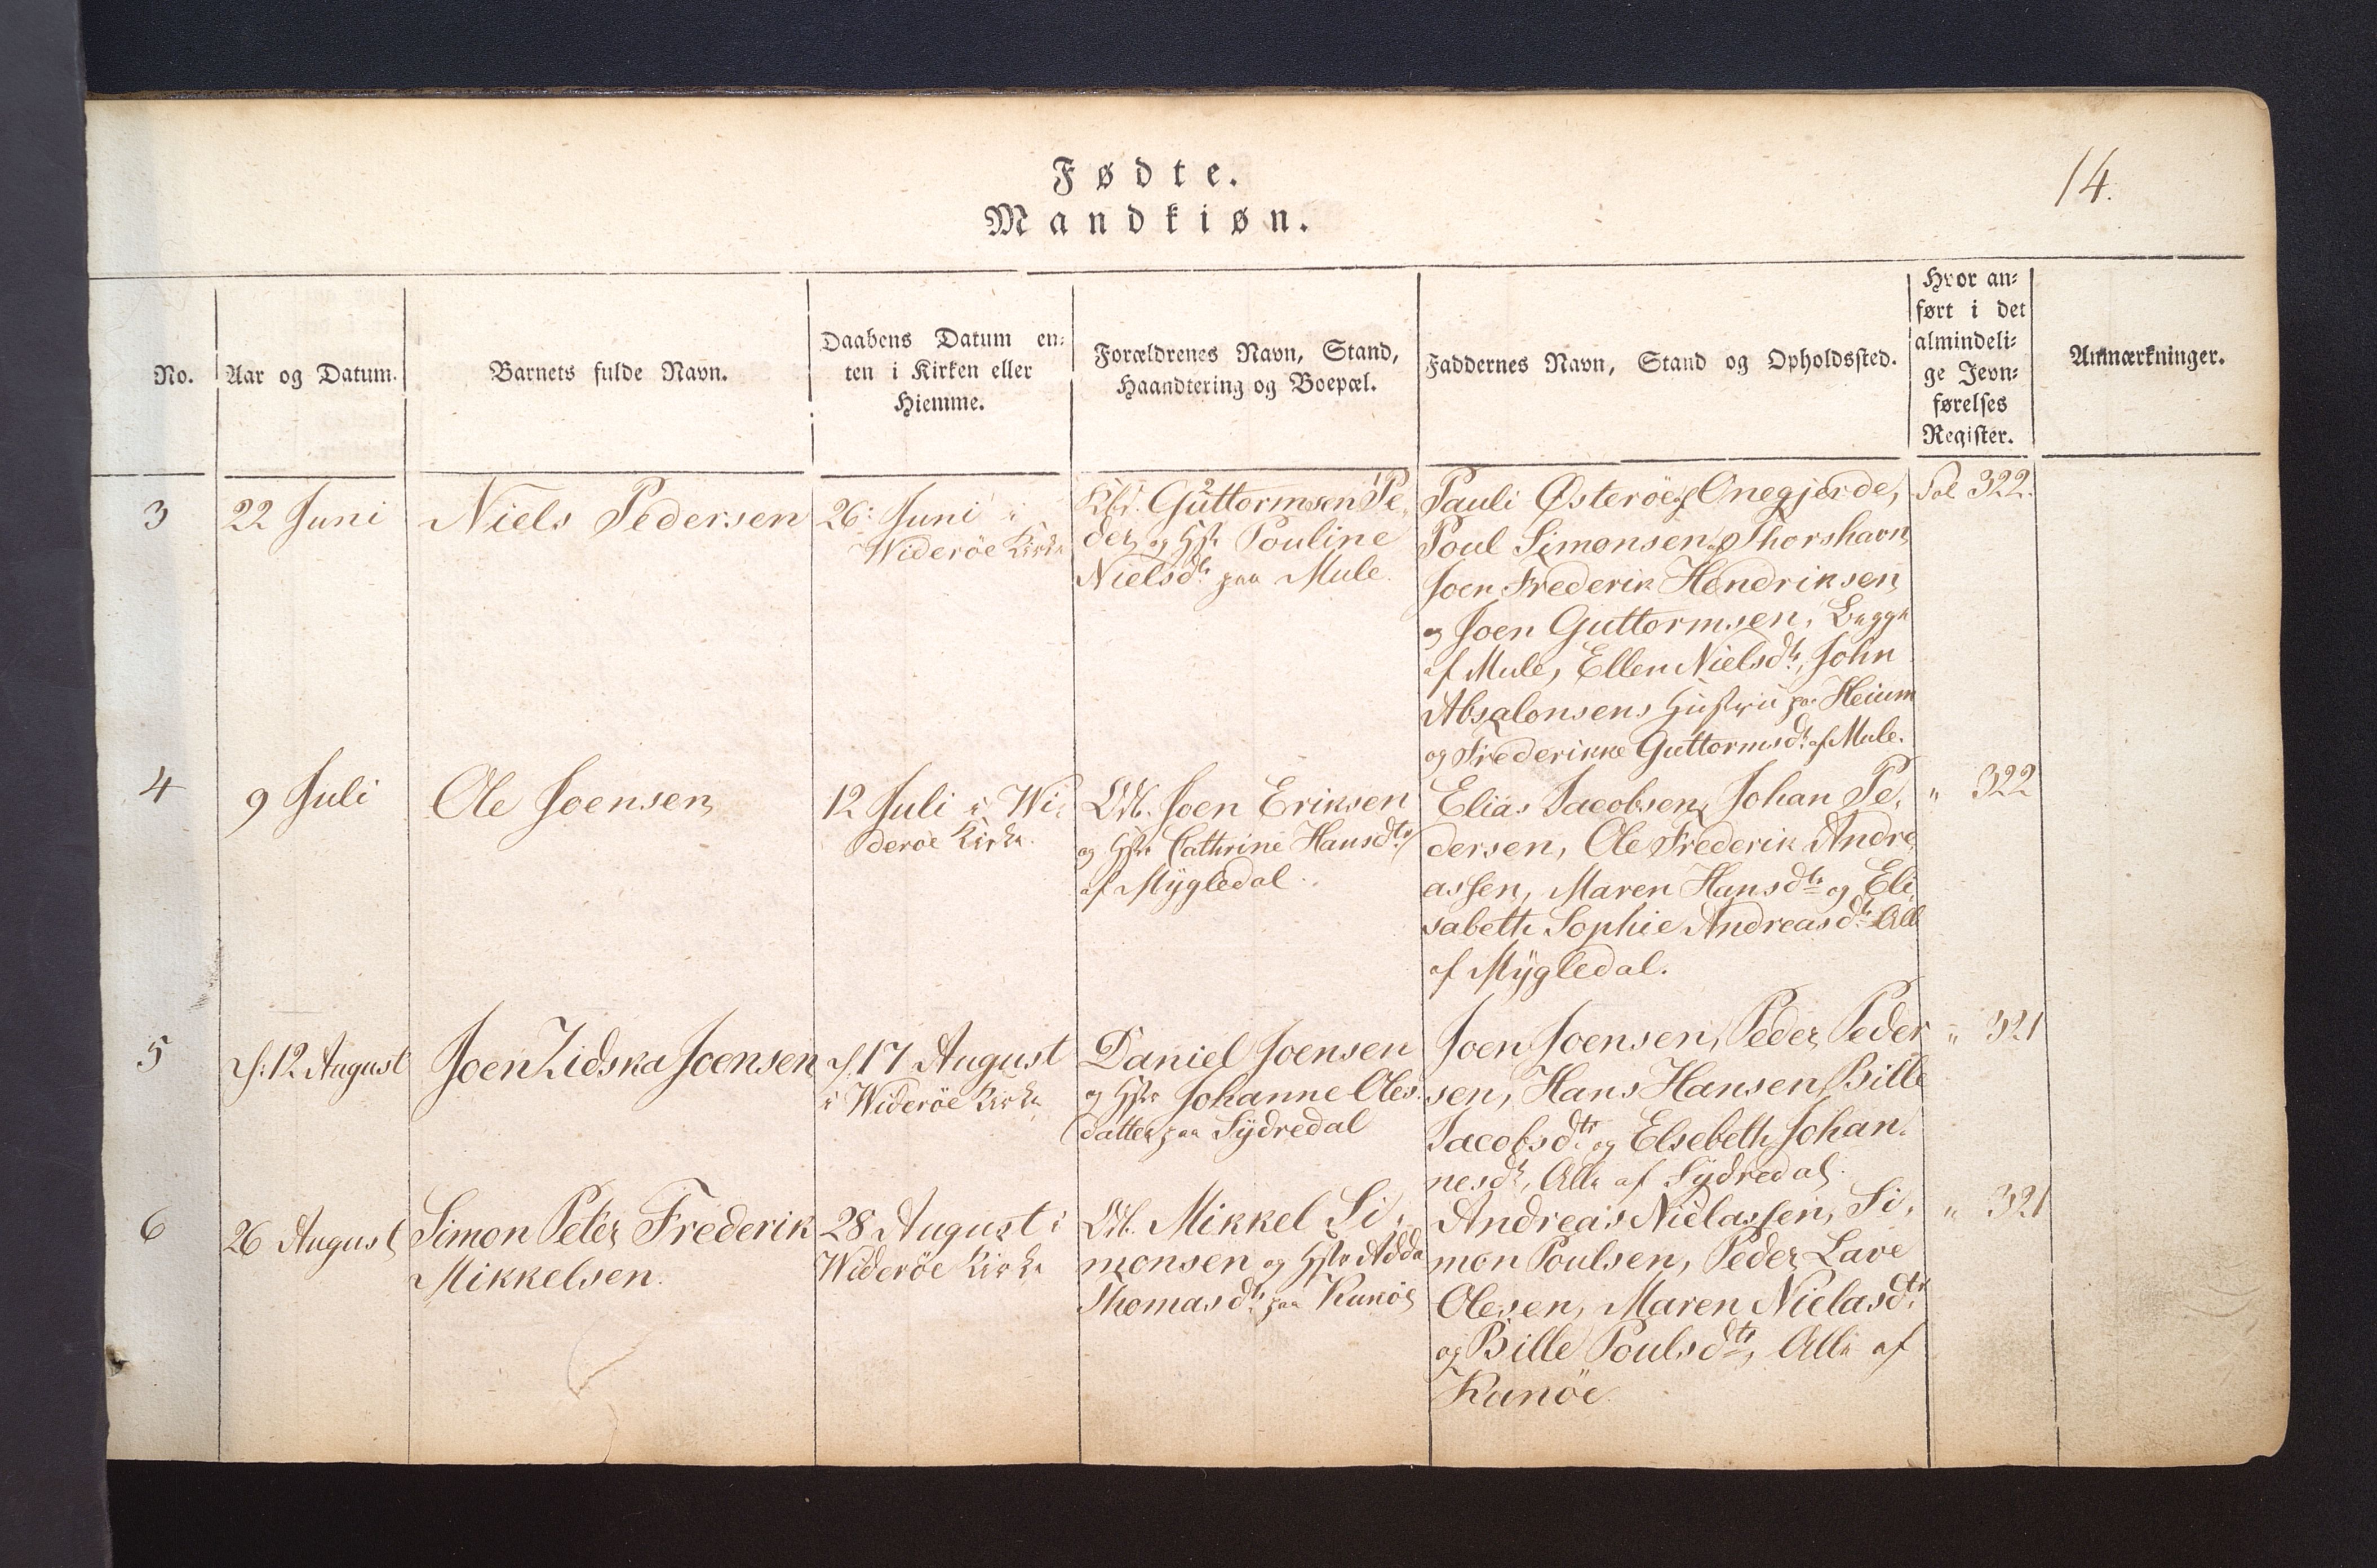 Fødte.
Mandkiøn.
14.
No.
Aar og Datum.
Barnets fulde Navn.
Daabens Datum en-
ten i Kirken eller
Hiemme.
Forældrenes Navn, Stand,
Haandtering og Boepæl.
Faddernes Navn, Stand og Opholdssted.
Hvor an-
ført i det
almindeli-
ge Jevn-
førelses
Register.
Anmærkninger.
3
22 Juni
Niels Pedersen
26: Juni i
Widerøe Kirke
Guttormsen Pe-
der og Hst Pouline
Nielsdtr paa Mule.
Pauli Østerøe af Onegjerde,
Poul Simonsen af Thorshavn
Joen Frederik Hendriksen
og Joen Guttormsen, Begge
af Mule, Ellen Nielsdtr, John
Absalonsens Hustru paa Heium
og Frederikke Guttormsdtr af Mule.
Fol 322.
4
9 Juli
Ole Joensen
12 Juli i Wi-
derøe Kirke.
Odb. Joen Eriksen
og Hstr Cathrine Hansdtr
af Mygledal.
Elias Jacobsen, Johan Pe-
dersen, Ole Frederik Andre-
assen, Maren Hansdtr og Eli-
sabeth Sophie Andreasdtr Alle
af Mygledal.
" 322
5
d: 12 August
Joen Zidska Joensen
d 17 August
i Widerøe Kirke
Daniel Joensen
og Hstr Johanne Oles-
datter paa Sydredal
Joen Joensen, Peder Peder
sen, Hans Hansen, Bille
Jacobsdtr og Elsebeth Johan-
nesdtr, Alle af Sydredal.
" 321
6
26 August
Simon Peter Frederik
Mikkelsen.
28 August i
Widerøe Kirke
Odb. Mikkel Si-
monsen og Hstr Adda
Thomasdtr paa Kunöe
Andreas Nielassen, Si-
mon Poulsen, Peder Lave
Olesen, Maren Nielasdtr
og Bille Poulsdtr, Alle af
Kunöe
" 321